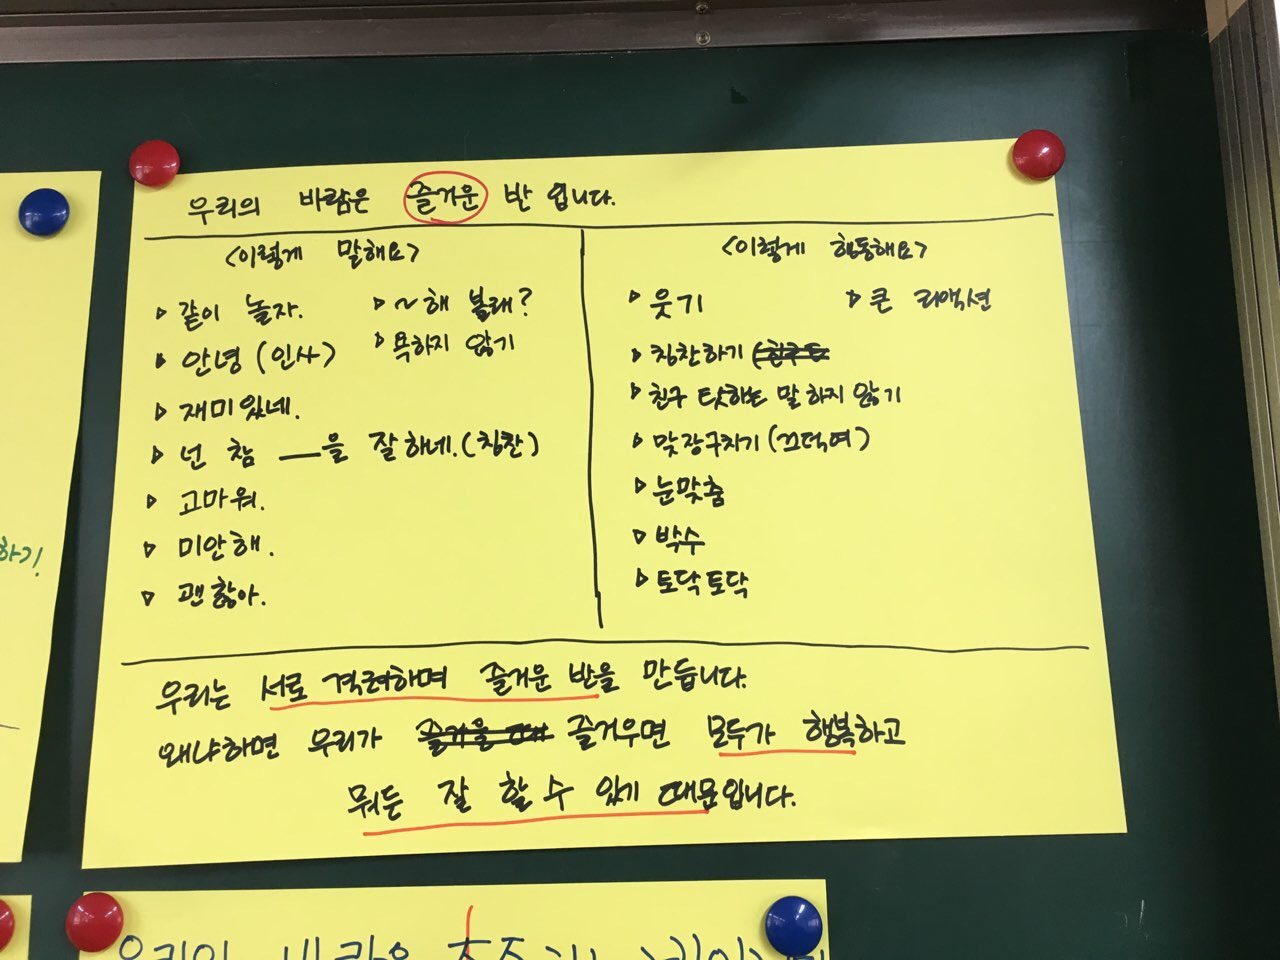 우리의 바람은 즐거운 반 입니다.
<이렇게 말해요>
▹ 같이 놀자.
▹ ~해 볼래?
▹ 안녕 (인사)
▹ 욕하지 않기
▹ 재미있네.
▹ 넌 참 __을 잘하네.(칭찬)
▹ 고마워.
▹ 미안해.
▹ 괜찮아.
<이렇게 행동해요>
▹ 웃기
▹ 큰 리액션
▹ 칭찬하기
▹ 친구 탓하는 말 하지 않기
▹ 맞장구치기 (끄덕여)
▹ 눈맞춤
▹ 박수
▹ 토닥토닥
우리는 서로 격려하며 즐거운 반을 만듭니다.
왜냐하면 우리가 즐거울 때 즐거우면 모두가 행복하고
뭐든 잘 할 수 있기 때문입니다.
하기!